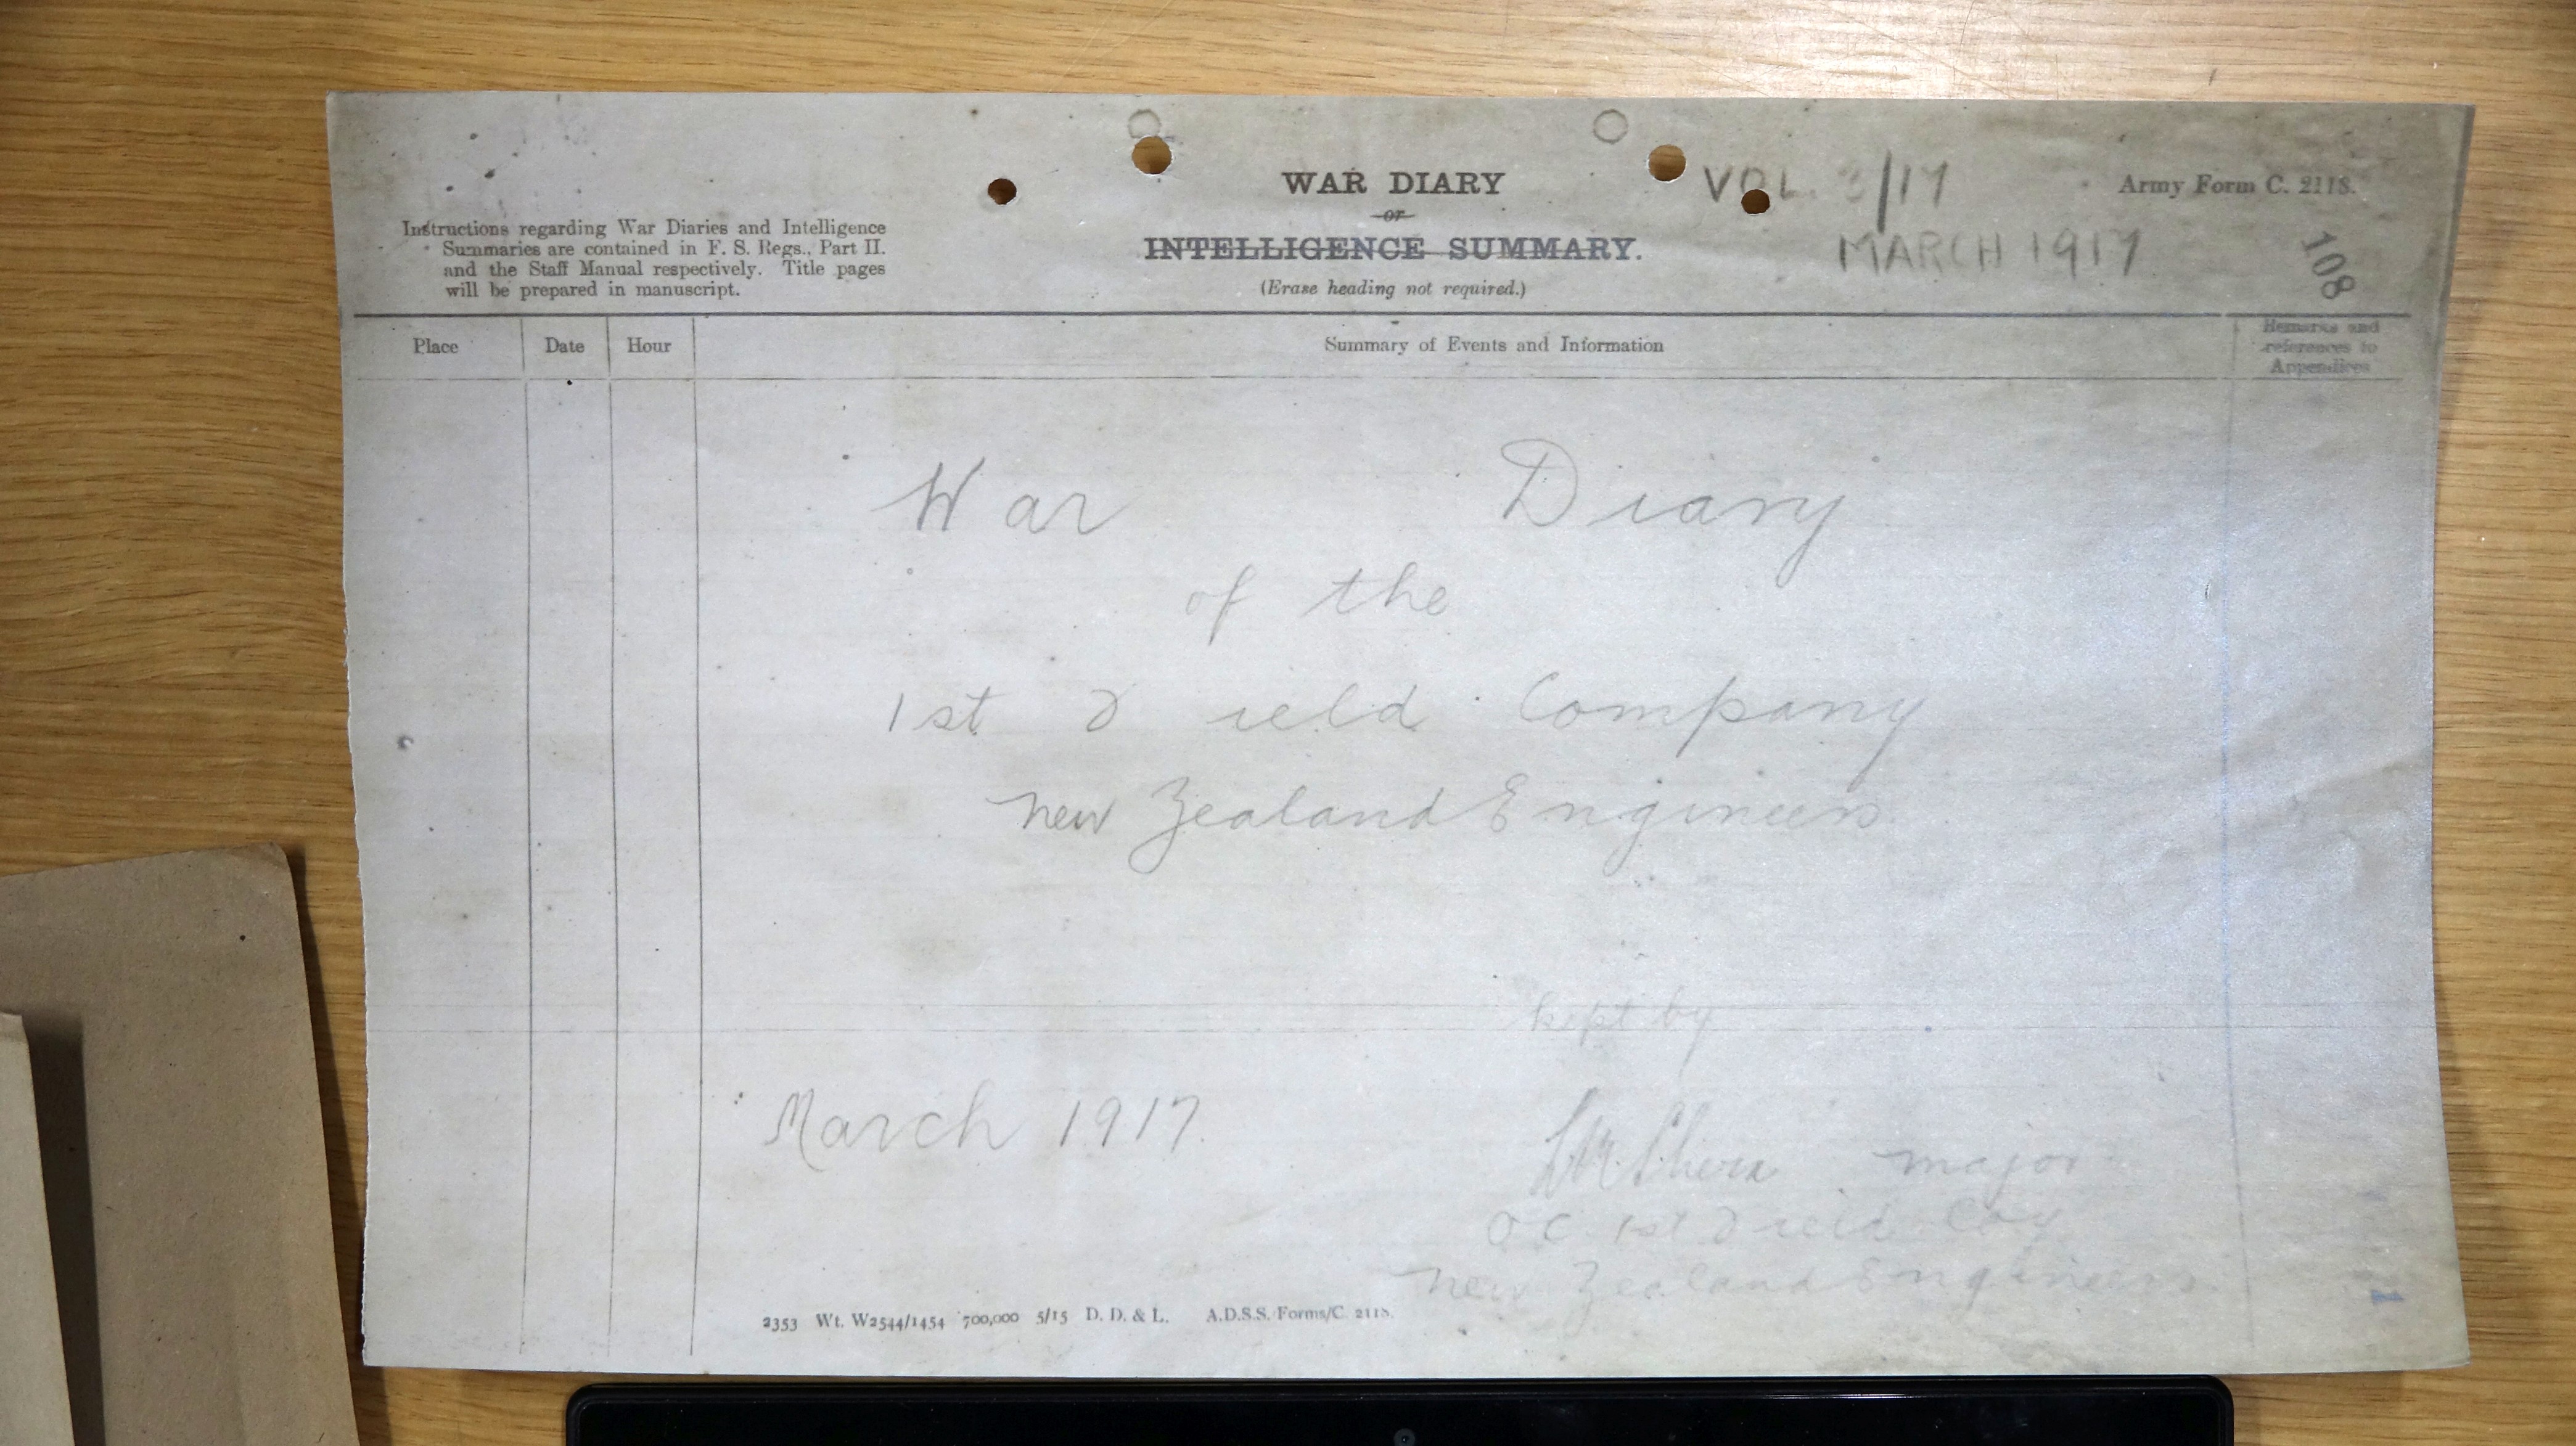 WAR DIARY
or
INTELLIGENCE SUMMARY.
(Erase heading not required.)
Instructions regarding War Diaries and Intelligence
Summaries are contained in F. S. Regs., Part II.
and the Staff Manual respectively. Title pages
will be prepared in manuscript.
VOL. 3/17
MARCH 1917
Army Form C. 2118.
108
Place Date Hour Summary of Events and Information Remarks and
references to
Appendices
War Diary
of the
1st Field Company
New Zealand Engineers
kept by
March 1917.
major
OC 1st Field Coy
New Zealand Engineers
2353 Wt. W2544/1454 700,000 5/15 D. D. & L. A.D.S.S./Forms/C. 2118.